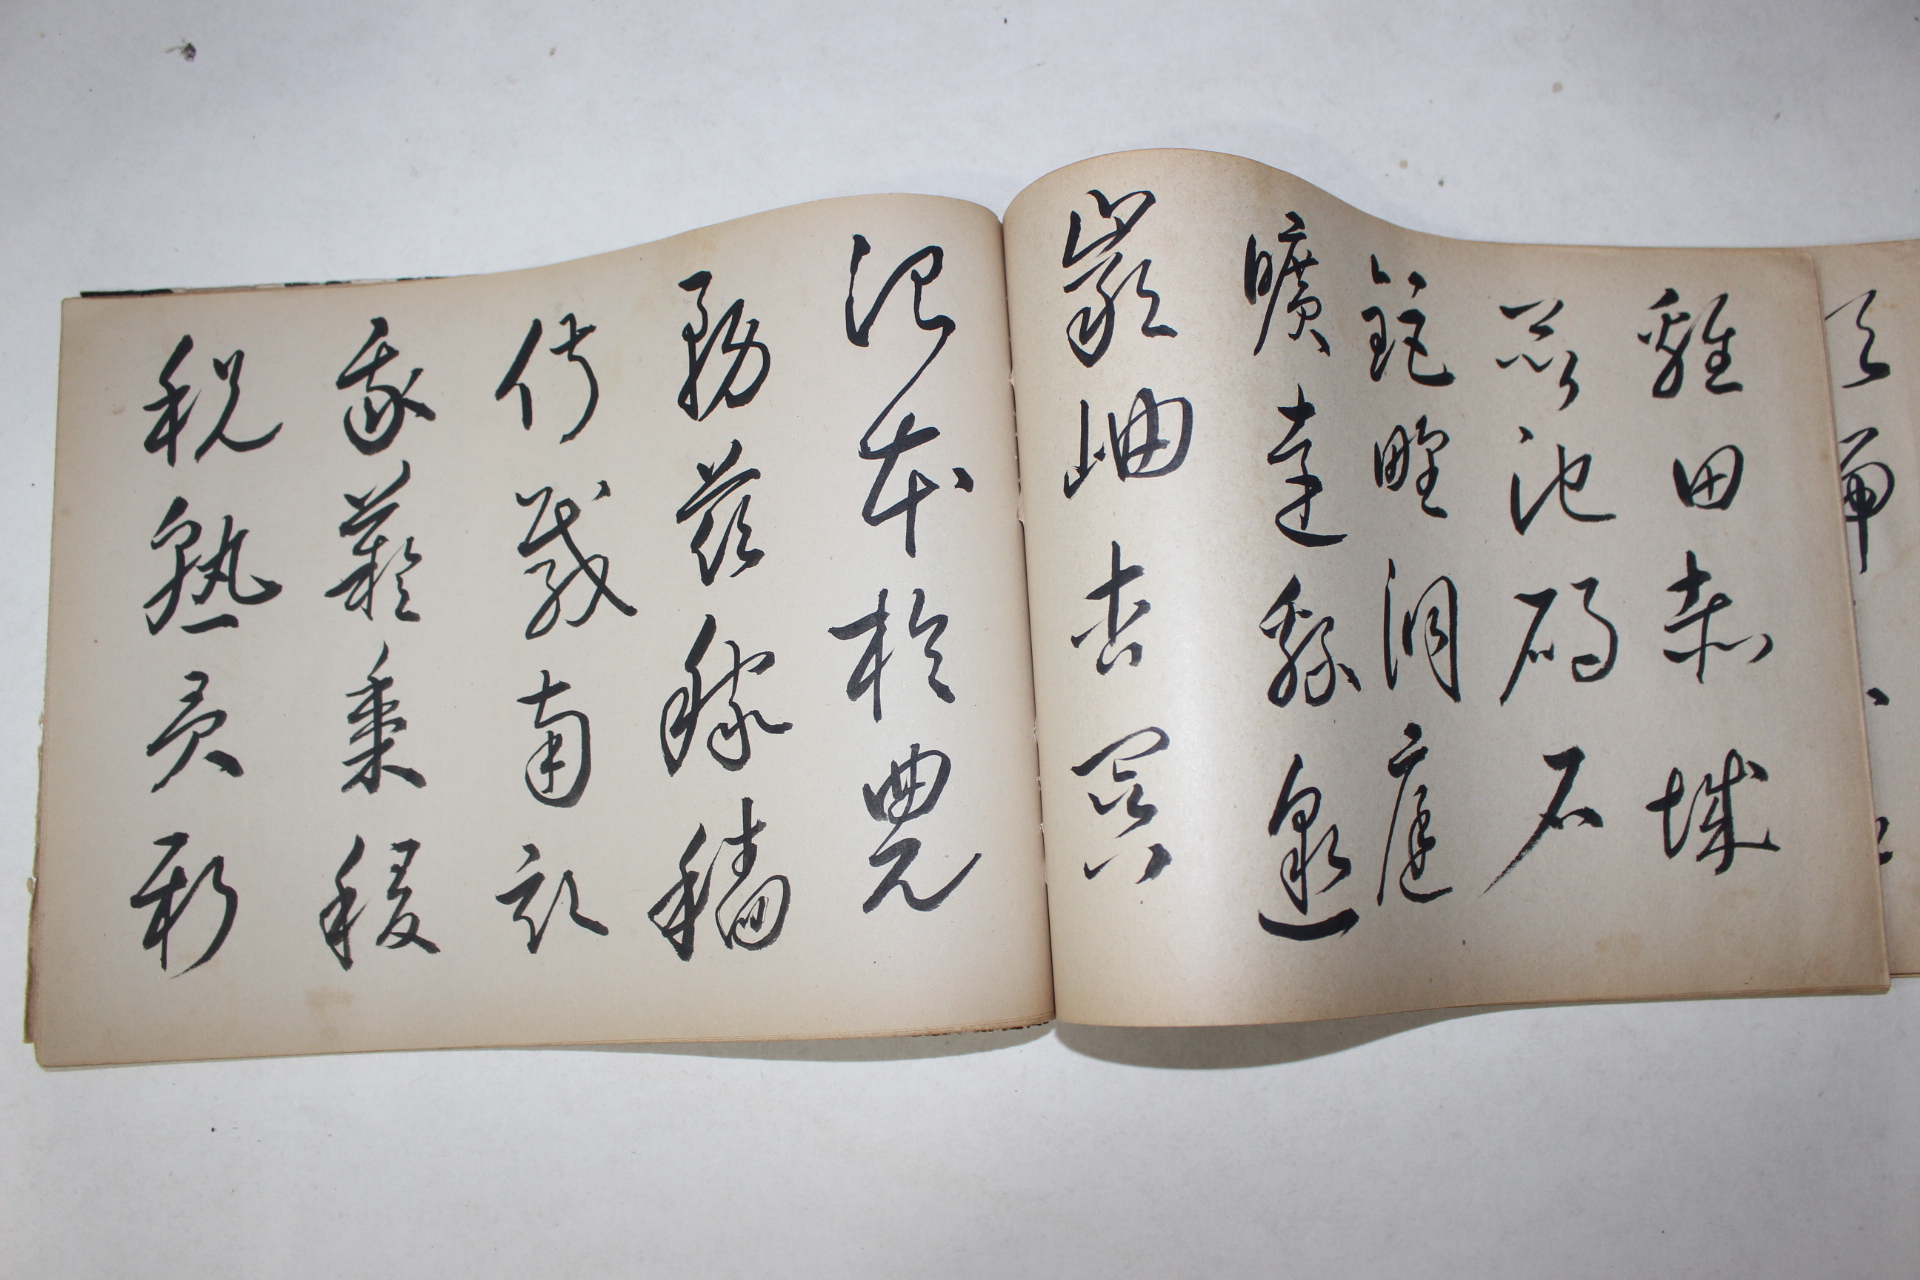 雞田赤城
昆池碣石
鉅野洞庭
曠遠緜邈
巖岫杳冥
治本於農
務茲稼穡
俶載南畝
我藝黍稷
稅熟貢新